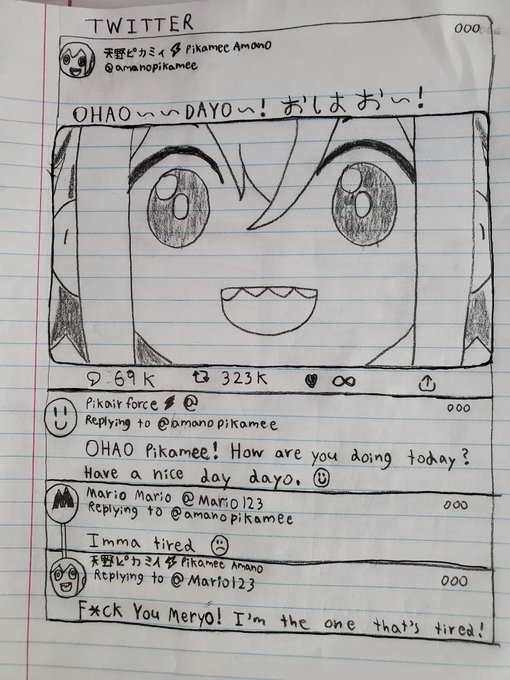 TWITTER
ooo
天野ピカミィ⚡Pikamee Amano
@amanopikamee
OHAO~~DAYO~! おしよ おい~!
69K 323K ∞
Pikairforce⚡@
ooo
Replying to @amanopikamee
OHAO Pikamee! How are you doing today?
Have a nice day dayo. ☺
M
Mario Mario @Mario123
ooo
Replying to @amanopikamee
Imma tired ☹
天野ピカミィ⚡Pikamee Amano
ooo
Replying to @Mario123
F*ck You Meryo! I'm the one that's tired!